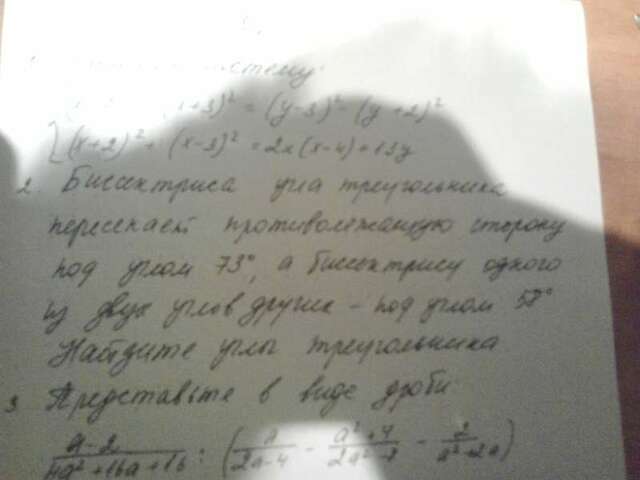 систему:
+3)² = (y-3)² - (y+2)²
(x+2)² + (x-3)² = 2x(x-4)+13y
2. Биссектриса угла треугольника
пересекает противолежащую сторону
под углом 73°, а биссектрису одного
из двух углов других - под углом
Найдите углы треугольника
3 Представьте в виде дроби:
a-2 / 4a²+16a+16 : ( a / 2a-4 - a²+4 / 2a²-8 - 2 / a²-2a )